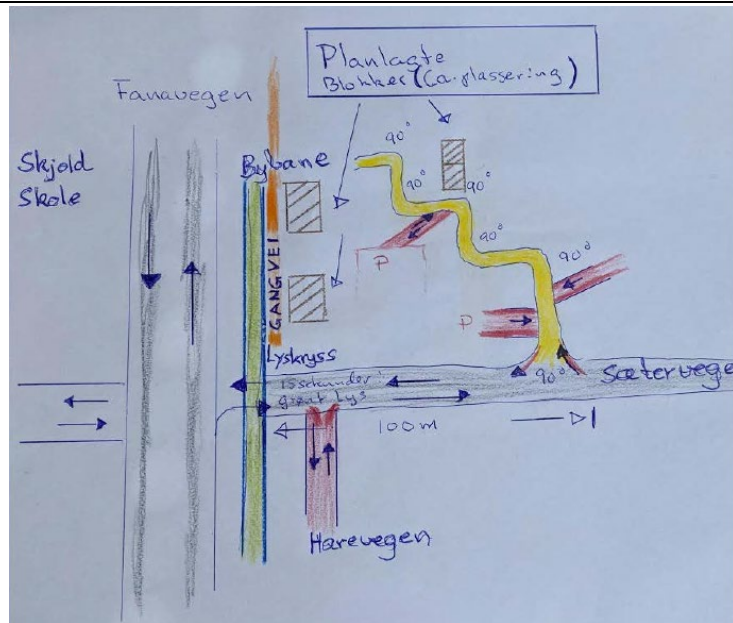 Planlagte
Blokker (Ca. plassering)
Fanavegen
Skjold
Skole
Bybane
90°
90°
90°
90°
90°
GANGVEI
P
P
Lyskryss
15 sekunder
grønt lys
90°
Sætervege
100m
Harevegen